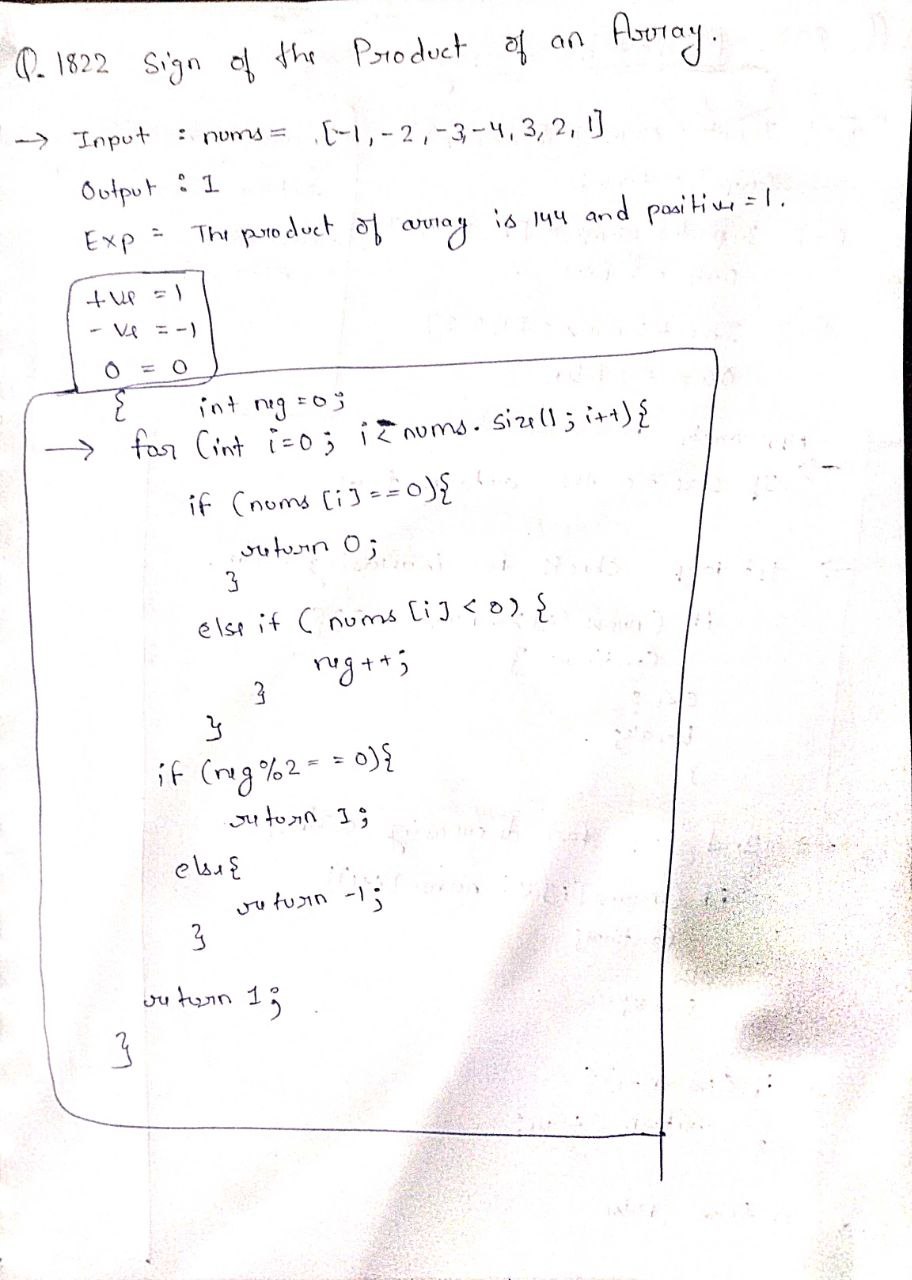 Q. 1822 Sign of the Product of an Array.
→ Input : nums = [-1, -2, -3 -4, 3, 2, 1]
Output : 1
Exp = The product of array is 144 and positive = 1.
+ve = 1
- ve = -1
0 = 0
{ int neg = 0;
→ for (int i=0; i < nums. size(); i++) {
if (nums [i] == 0) {
return 0;
}
else if ( nums [i] < 0) {
neg ++;
}
}
if (neg % 2 == 0) {
return 1;
else {
return -1;
}
return 1;
}